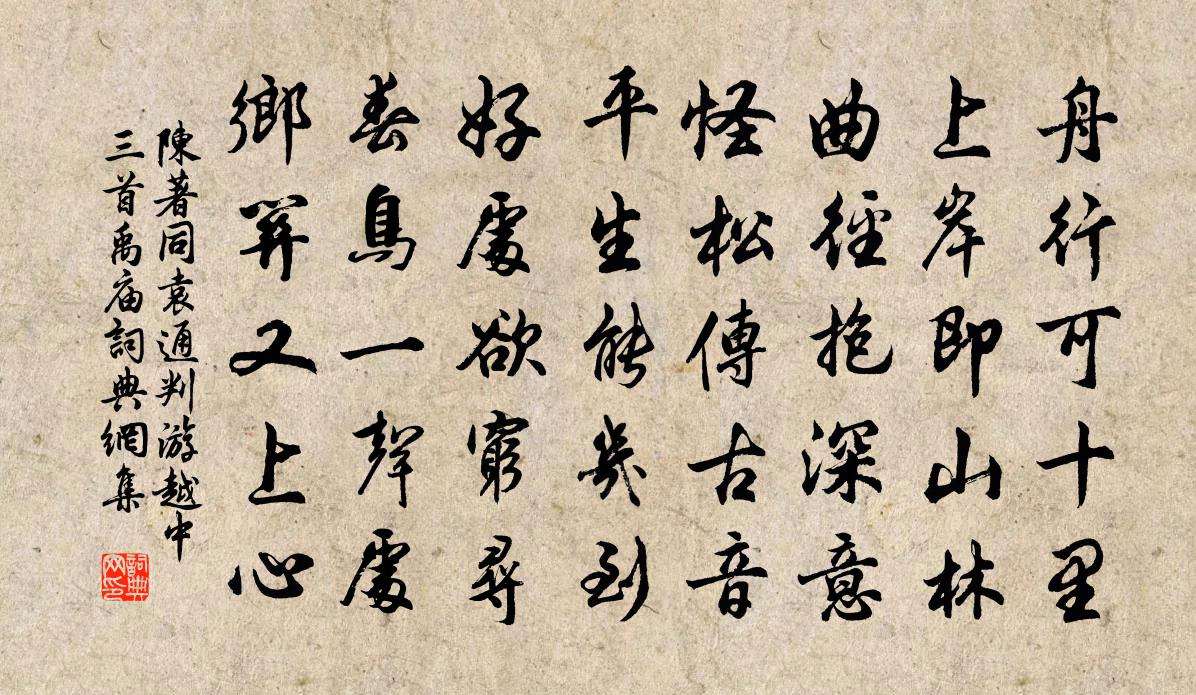 舟行可十里
上岸即山林
曲徑抱深意
怪松傳古音
平生能幾到
好處欲窮尋
春鳥一聲處
鄉關又上心
陳著同袁通判游越中
三首禹庙詞典網集
詞典
网印